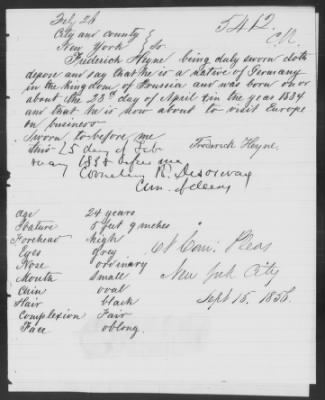 July 26
5412
City and county }
New York } Ss.
Frederick Heyne being duly sworn doth
depose and say that he is a native of Germany
in the kingdom of Prussia and was born on or
about the 28th day of April in the year 1834
and that he is now about to visit Europe
on business
Sworn to before me
this 25 day of Feb
Frederick Heyne.
1858 before me
Cornelius R. Disosway
Com. of deeds
age 24 years
Stature 5 feet 9 inches
Forehead high
Eyes grey
Nose ordinary
Mouth small
Chin oval
Hair black
Complexion Fair
Face oblong.
Ct Com: Pleas
New York City
Sept 15, 1856.